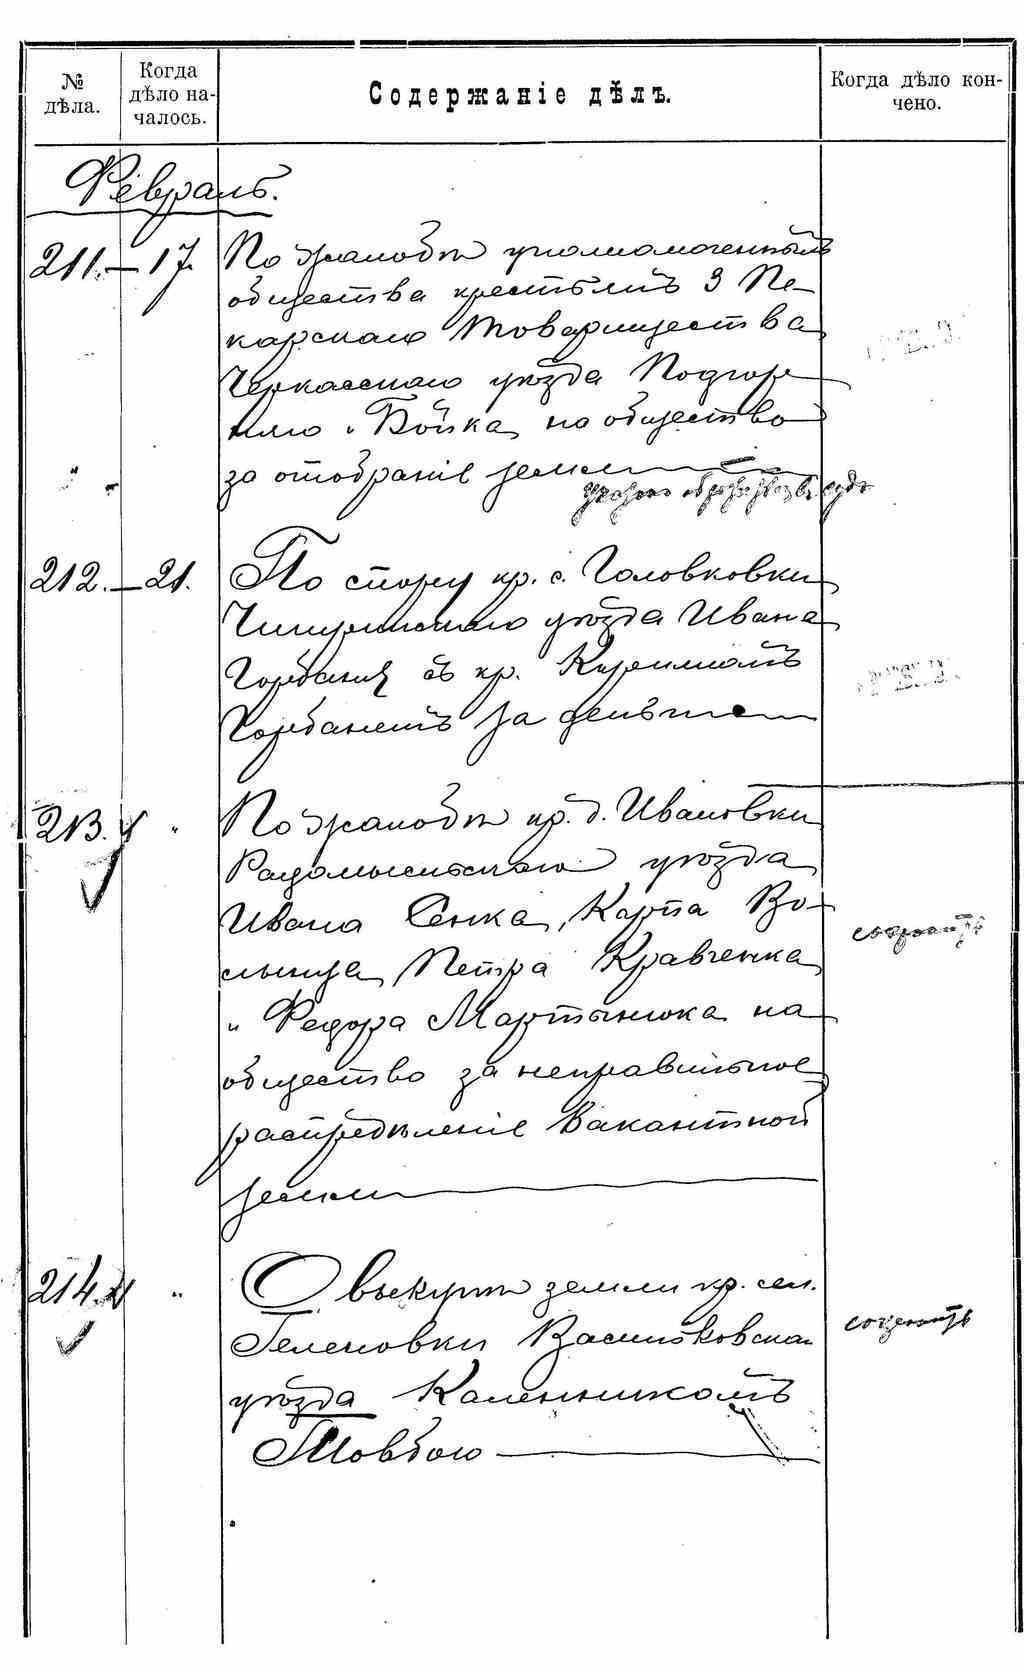 № дѣла.
Когда дѣло началось.
Содержаніе дѣлъ.
Когда дѣло кончено.
Февраль.
211. — 17. По жалобѣ уполномоченныхъ
общества крестьянъ 3 Пе-
карскаго Товарищества
Черкасскаго уѣзда Подгор-
наго и Бойка на общество
за отобраніе земли
212. — 21. По спору кр. с. Головковки
Чигиринскаго уѣзда Ивана
Горбаня съ кр. Кириломъ
Горбанемъ за деньги
213. " По жалобѣ кр. д. Ивановки
Радомысльскаго уѣзда
Ивана Сенка, Карпа Во-
лынца, Петра Кравченка
и Федора Мартынюка на
общество за неправильное
распредѣленіе вакантной
земли
214. " О выкупѣ земли кр. сел.
Геленовки Васильковскаго
уѣзда Каленникомъ
Товбою